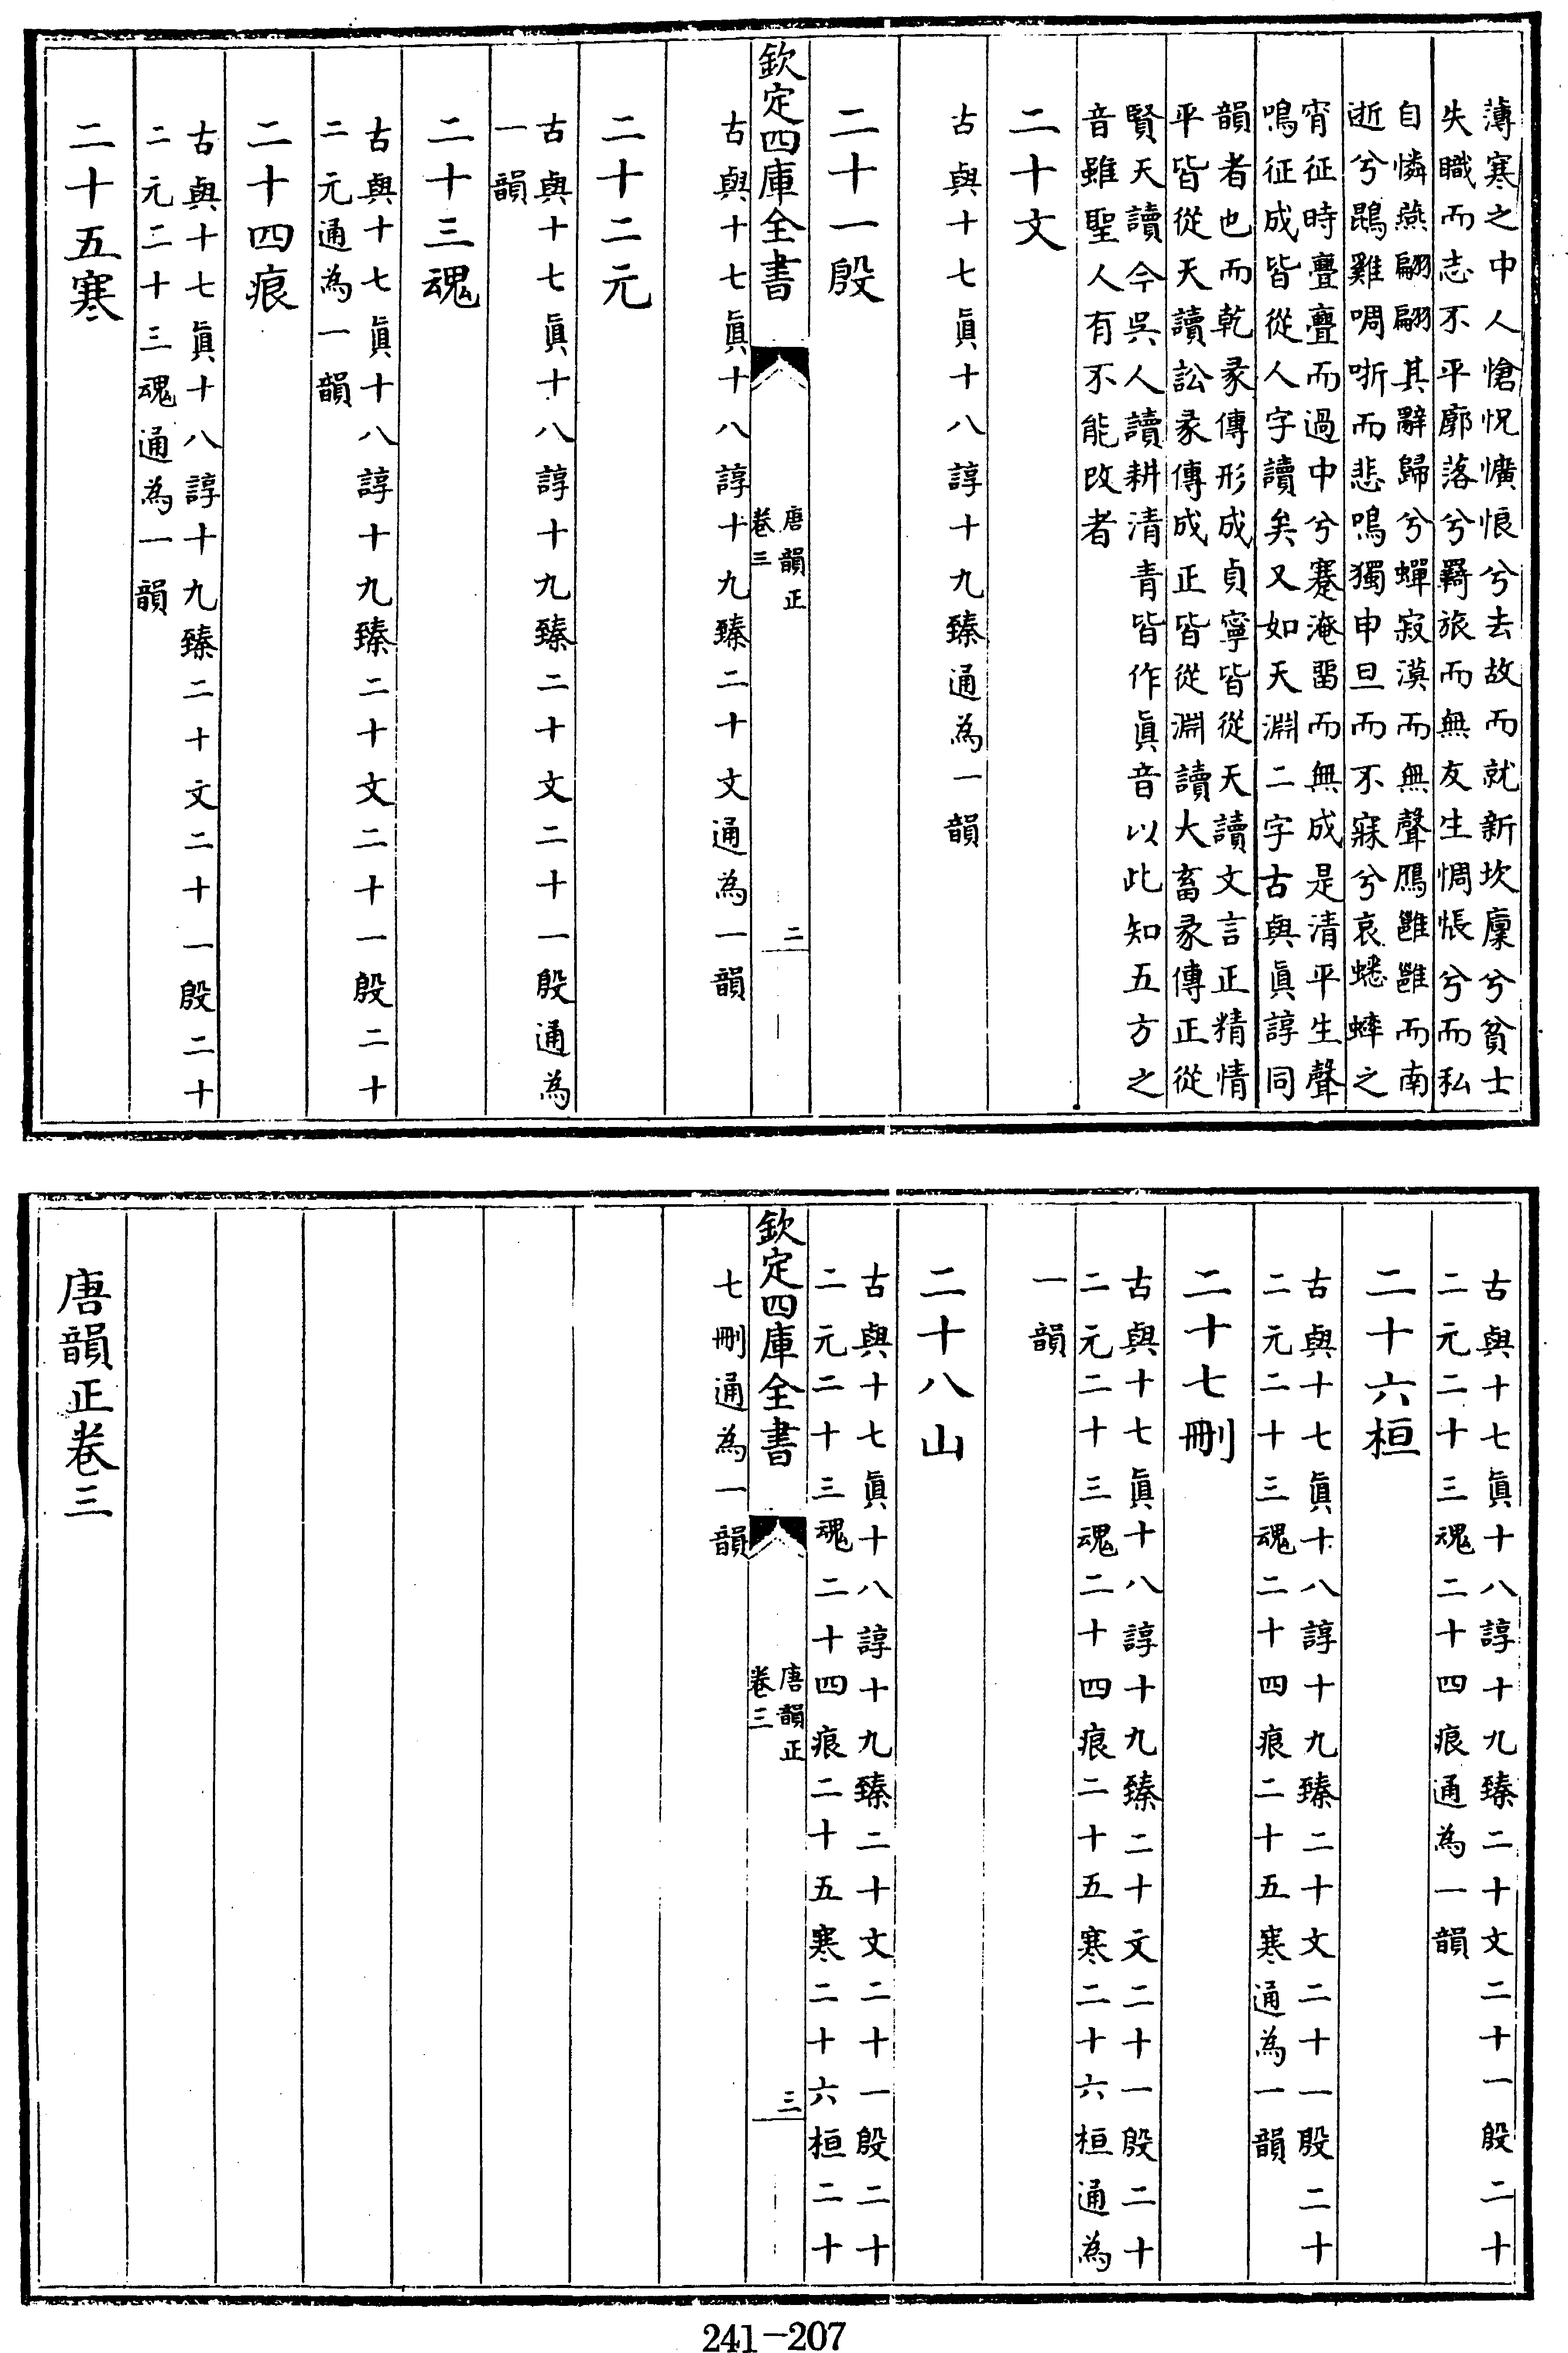 薄寒之中人愴怳懭悢兮去故而就新坎廩兮貧士
失職而志不平廓落兮羇旅而無友生惆悵兮而私
自憐燕翩翩其辭歸兮蟬寂漠而無聲鴈雝雝而南
逝兮鵾雞啁哳而悲鳴獨申旦而不寐兮哀蟋蟀之
宵征時亹亹而過中兮蹇淹畱而無成是清平生聲
鳴征成皆從人字讀矣又如天淵二字古與眞諄同
韻者也而乾彖傳形成貞寧皆從天讀文言正精情
平皆從天讀訟彖傳成正皆從淵讀大畜彖傳正從
賢天讀今吳人讀耕清青皆作眞音以此知五方之
音雖聖人有不能改者
二十文
古與十七眞十八諄十九臻通為一韻
二十一殷
欽定四庫全書
唐韻正
卷三
二
古與十七眞十八諄十九臻二十文通為一韻
二十二元
古與十七眞十八諄十九臻二十文二十一殷通為
一韻
二十三魂
古與十七眞十八諄十九臻二十文二十一殷二十
二元通為一韻
二十四痕
古與十七眞十八諄十九臻二十文二十一殷二十
二元二十三魂通為一韻
二十五寒
古與十七眞十八諄十九臻二十文二十一殷二十
二元二十三魂二十四痕通為一韻
二十六桓
古與十七眞十八諄十九臻二十文二十一殷二十
二元二十三魂二十四痕二十五寒通為一韻
二十七刪
古與十七眞十八諄十九臻二十文二十一殷二十
二元二十三魂二十四痕二十五寒二十六桓通為
一韻
二十八山
古與十七眞十八諄十九臻二十文二十一殷二十
二元二十三魂二十四痕二十五寒二十六桓二十
欽定四庫全書
唐韻正
卷三
三
七刪通為一韻
唐韻正卷三
241-207